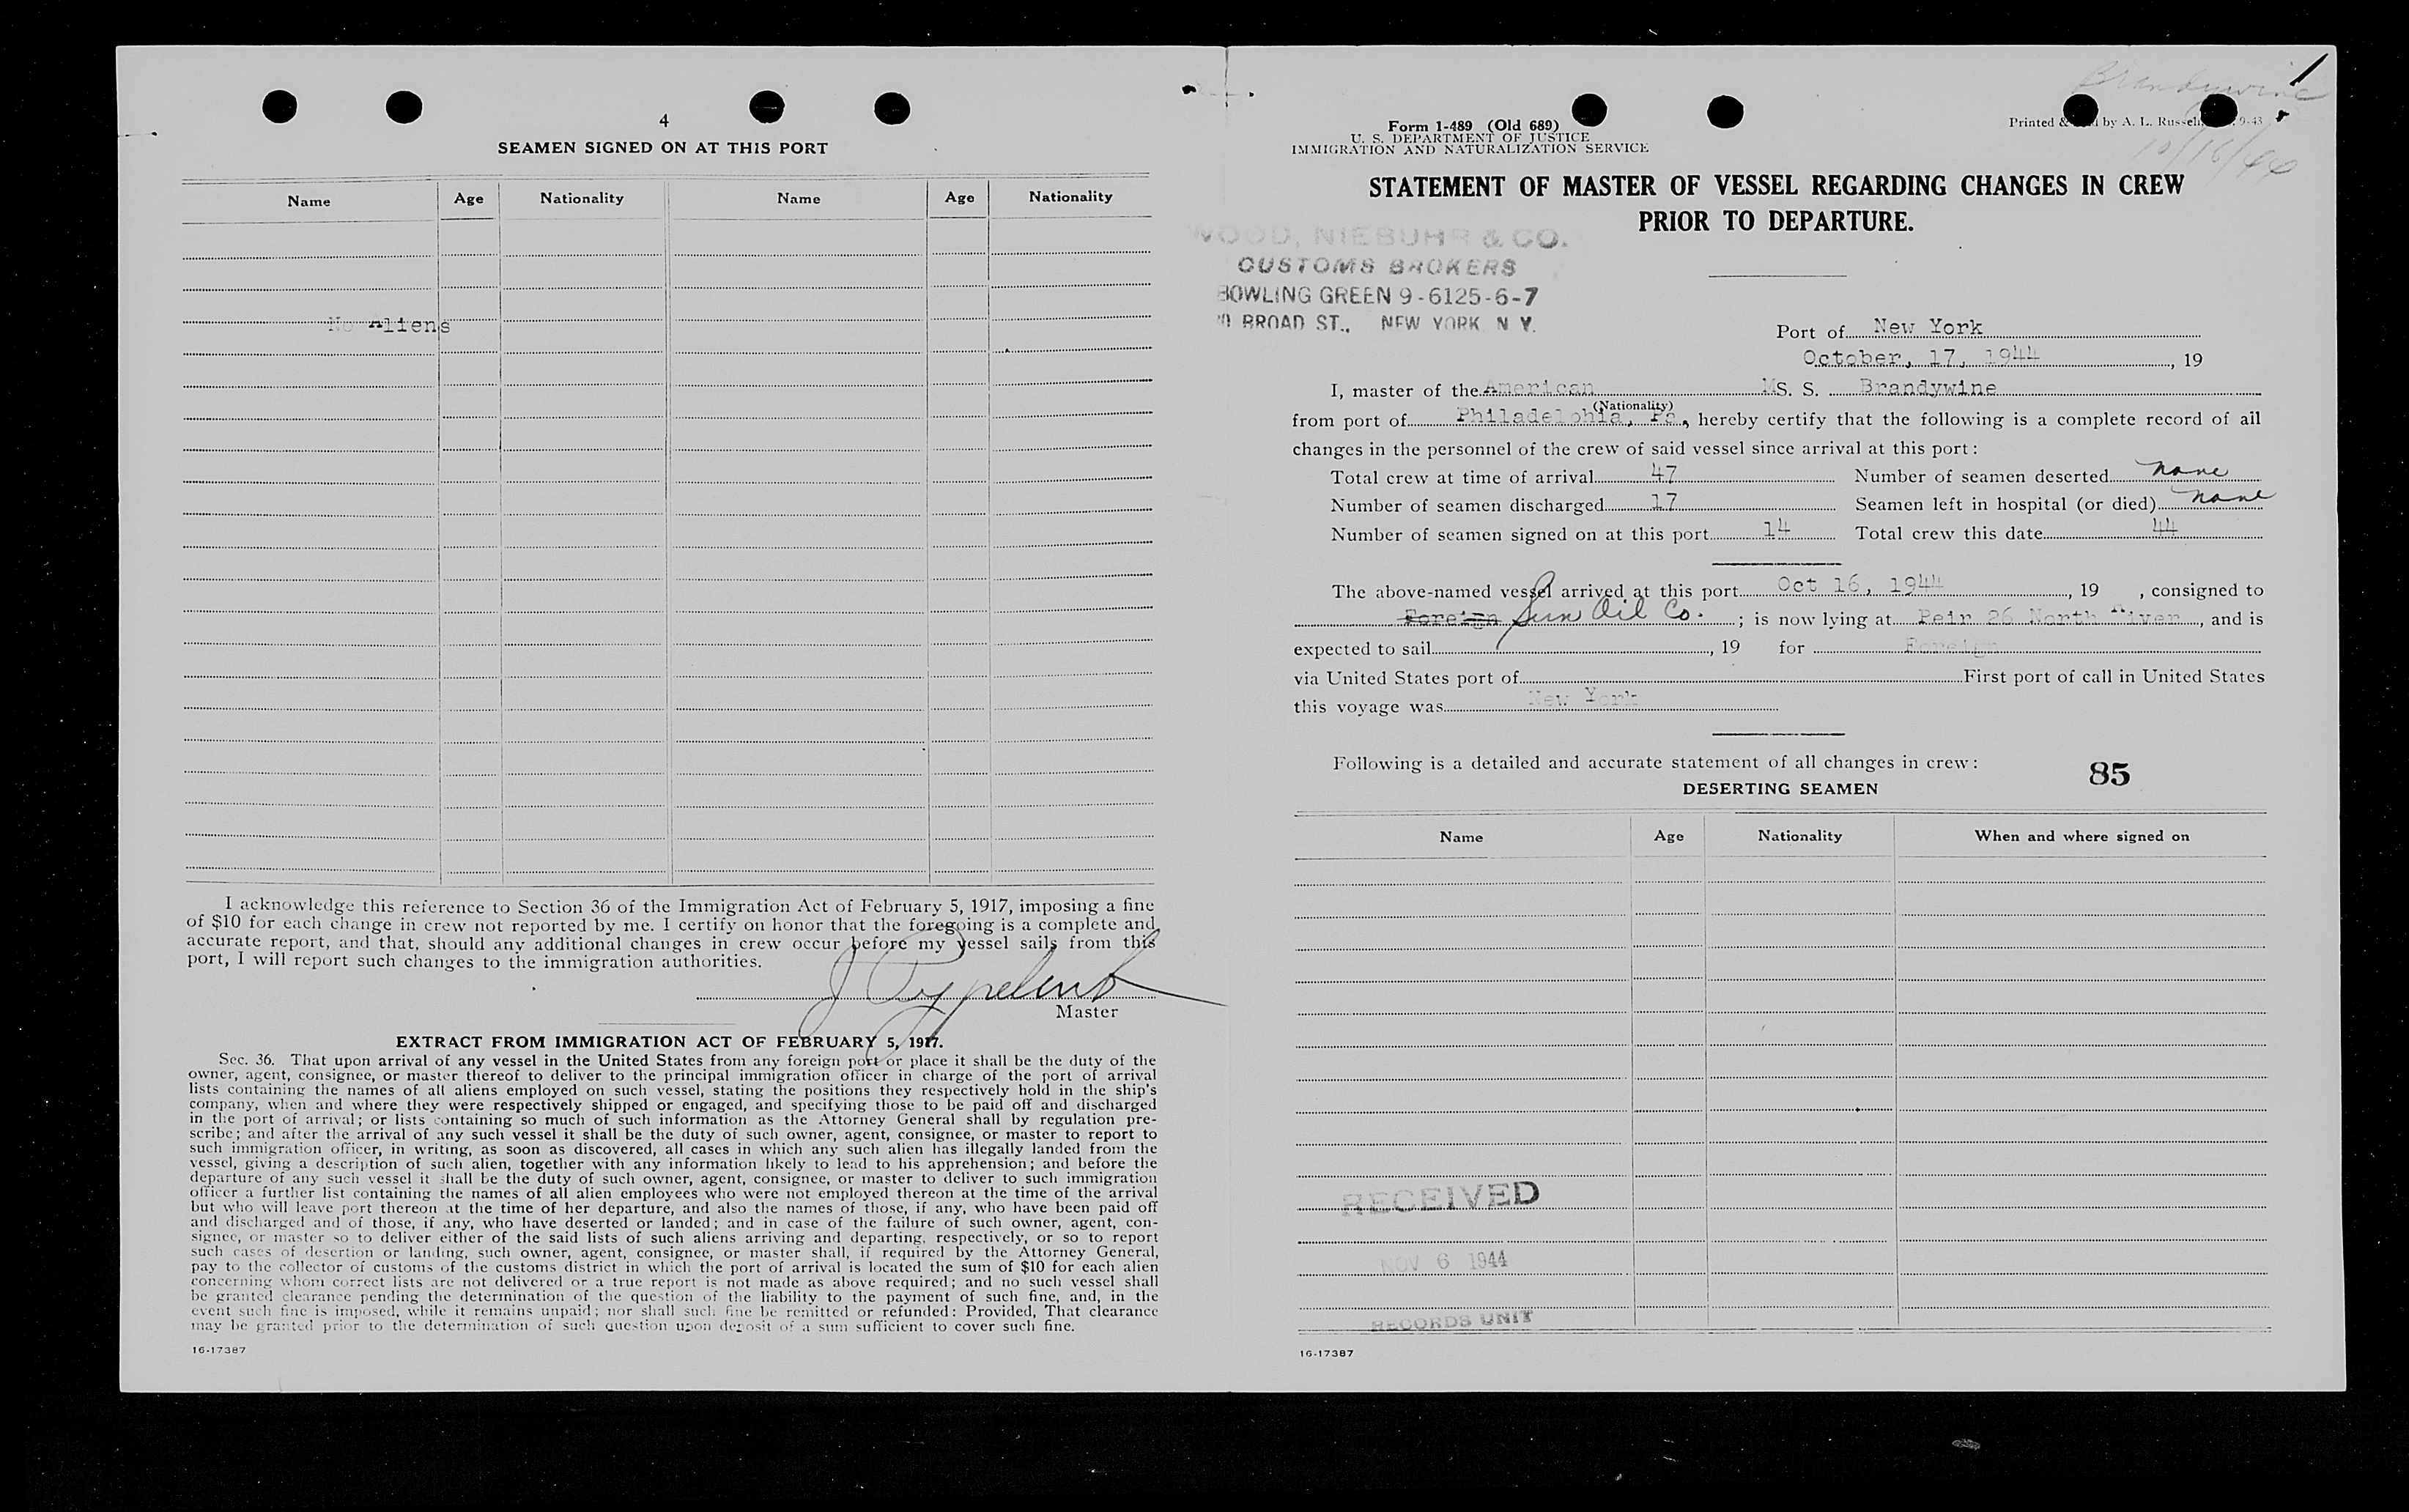 4
SEAMEN SIGNED ON AT THIS PORT
Name Age Nationality Name Age Nationality
No Aliens
I acknowledge this reference to Section 36 of the Immigration Act of February 5, 1917, imposing a fine
of $10 for each change in crew not reported by me. I certify on honor that the foregoing is a complete and
accurate report, and that, should any additional changes in crew occur before my vessel sails from this
port, I will report such changes to the immigration authorities.
Master
EXTRACT FROM IMMIGRATION ACT OF FEBRUARY 5, 1917.
Sec. 36. That upon arrival of any vessel in the United States from any foreign port or place it shall be the duty of the
owner, agent, consignee, or master thereof to deliver to the principal immigration officer in charge of the port of arrival
lists containing the names of all aliens employed on such vessel, stating the positions they respectively hold in the ship's
company, when and where they were respectively shipped or engaged, and specifying those to be paid off and discharged
in the port of arrival; or lists containing so much of such information as the Attorney General shall by regulation pre-
scribe; and after the arrival of any such vessel it shall be the duty of such owner, agent, consignee, or master to report to
such immigration officer, in writing, as soon as discovered, all cases in which any such alien has illegally landed from the
vessel, giving a description of such alien, together with any information likely to lead to his apprehension; and before the
departure of any such vessel it shall be the duty of such owner, agent, consignee, or master to deliver to such immigration
officer a further list containing the names of all alien employees who were not employed thereon at the time of the arrival
but who will leave port thereon at the time of her departure, and also the names of those, if any, who have been paid off
and discharged and of those, if any, who have deserted or landed; and in case of the failure of such owner, agent, con-
signee, or master so to deliver either of the said lists of such aliens arriving and departing, respectively, or so to report
such cases of desertion or landing, such owner, agent, consignee, or master shall, if required by the Attorney General,
pay to the collector of customs of the customs district in which the port of arrival is located the sum of $10 for each alien
concerning whom correct lists are not delivered or a true report is not made as above required; and no such vessel shall
be granted clearance pending the determination of the question of the liability to the payment of such fine, and, in the
event such fine is imposed, while it remains unpaid; nor shall such fine be remitted or refunded: Provided, That clearance
may be granted prior to the determination of such question upon deposit of a sum sufficient to cover such fine.
16-17387
1
Brandywine
10/16/44
Form 1-489 (Old 689)
U. S. DEPARTMENT OF JUSTICE
IMMIGRATION AND NATURALIZATION SERVICE
Printed & by A. L. Russell, 9-43
STATEMENT OF MASTER OF VESSEL REGARDING CHANGES IN CREW
PRIOR TO DEPARTURE.
WOOD, NIEBUHR & CO.
CUSTOMS BROKERS
BOWLING GREEN 9-6125-6-7
BROAD ST., NEW YORK N Y.
Port of New York
October, 17, 1944, 19
I, master of the American MS. S. Brandywine
(Nationality)
from port of Philadelphia, Pa, hereby certify that the following is a complete record of all
changes in the personnel of the crew of said vessel since arrival at this port:
Total crew at time of arrival 47 Number of seamen deserted none
Number of seamen discharged 17 Seamen left in hospital (or died) none
Number of seamen signed on at this port 14 Total crew this date 44
The above-named vessel arrived at this port Oct 16, 1944, 19 , consigned to
Foreign Sun Oil Co. ; is now lying at Peir 26 North River, and is
expected to sail , 19 for Foreign
via United States port of First port of call in United States
this voyage was New York
Following is a detailed and accurate statement of all changes in crew:
85
DESERTING SEAMEN
Name Age Nationality When and where signed on
RECEIVED
NOV 6 1944
RECORDS UNIT
16-17387